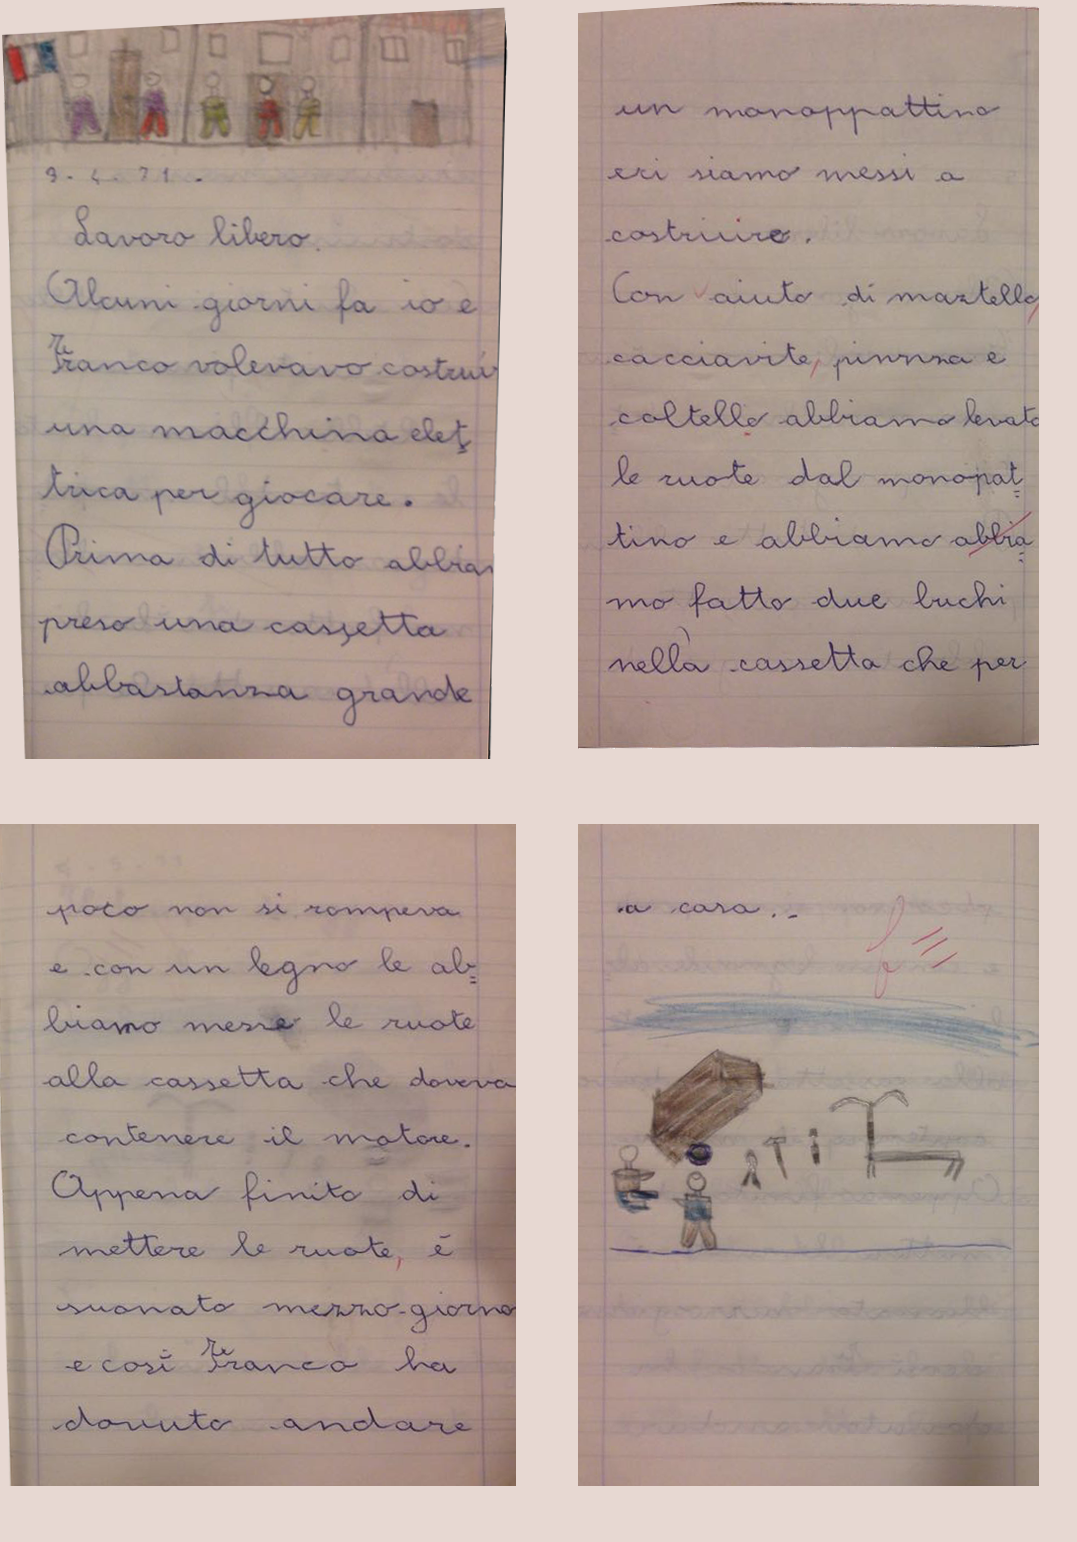 9. 4. 71.
Lavoro libero.
Alcuni giorni fa io e
Franco volevavo costrui
una macchina elet
trica per giocare.
Prima di tutto abbiam
preso una cassetta
abbastanza grande
un monoppattino
eci siamo messi a
costruire.
Con aiuto di martello,
cacciavite, pinnza e
coltello abbiamo levato
le ruote dal monopat
tino e abbiamo abbia
mo fatto due buchi
nella cassetta che per
poco non si rompeva
e con un legno le ab
biamo messe le ruote
alla cassetta che doveva
contenere il motore.
Appena finito di
mettere le ruote, è
suonato mezzo-giorno
e così Franco ha
dovuto andare
a casa..